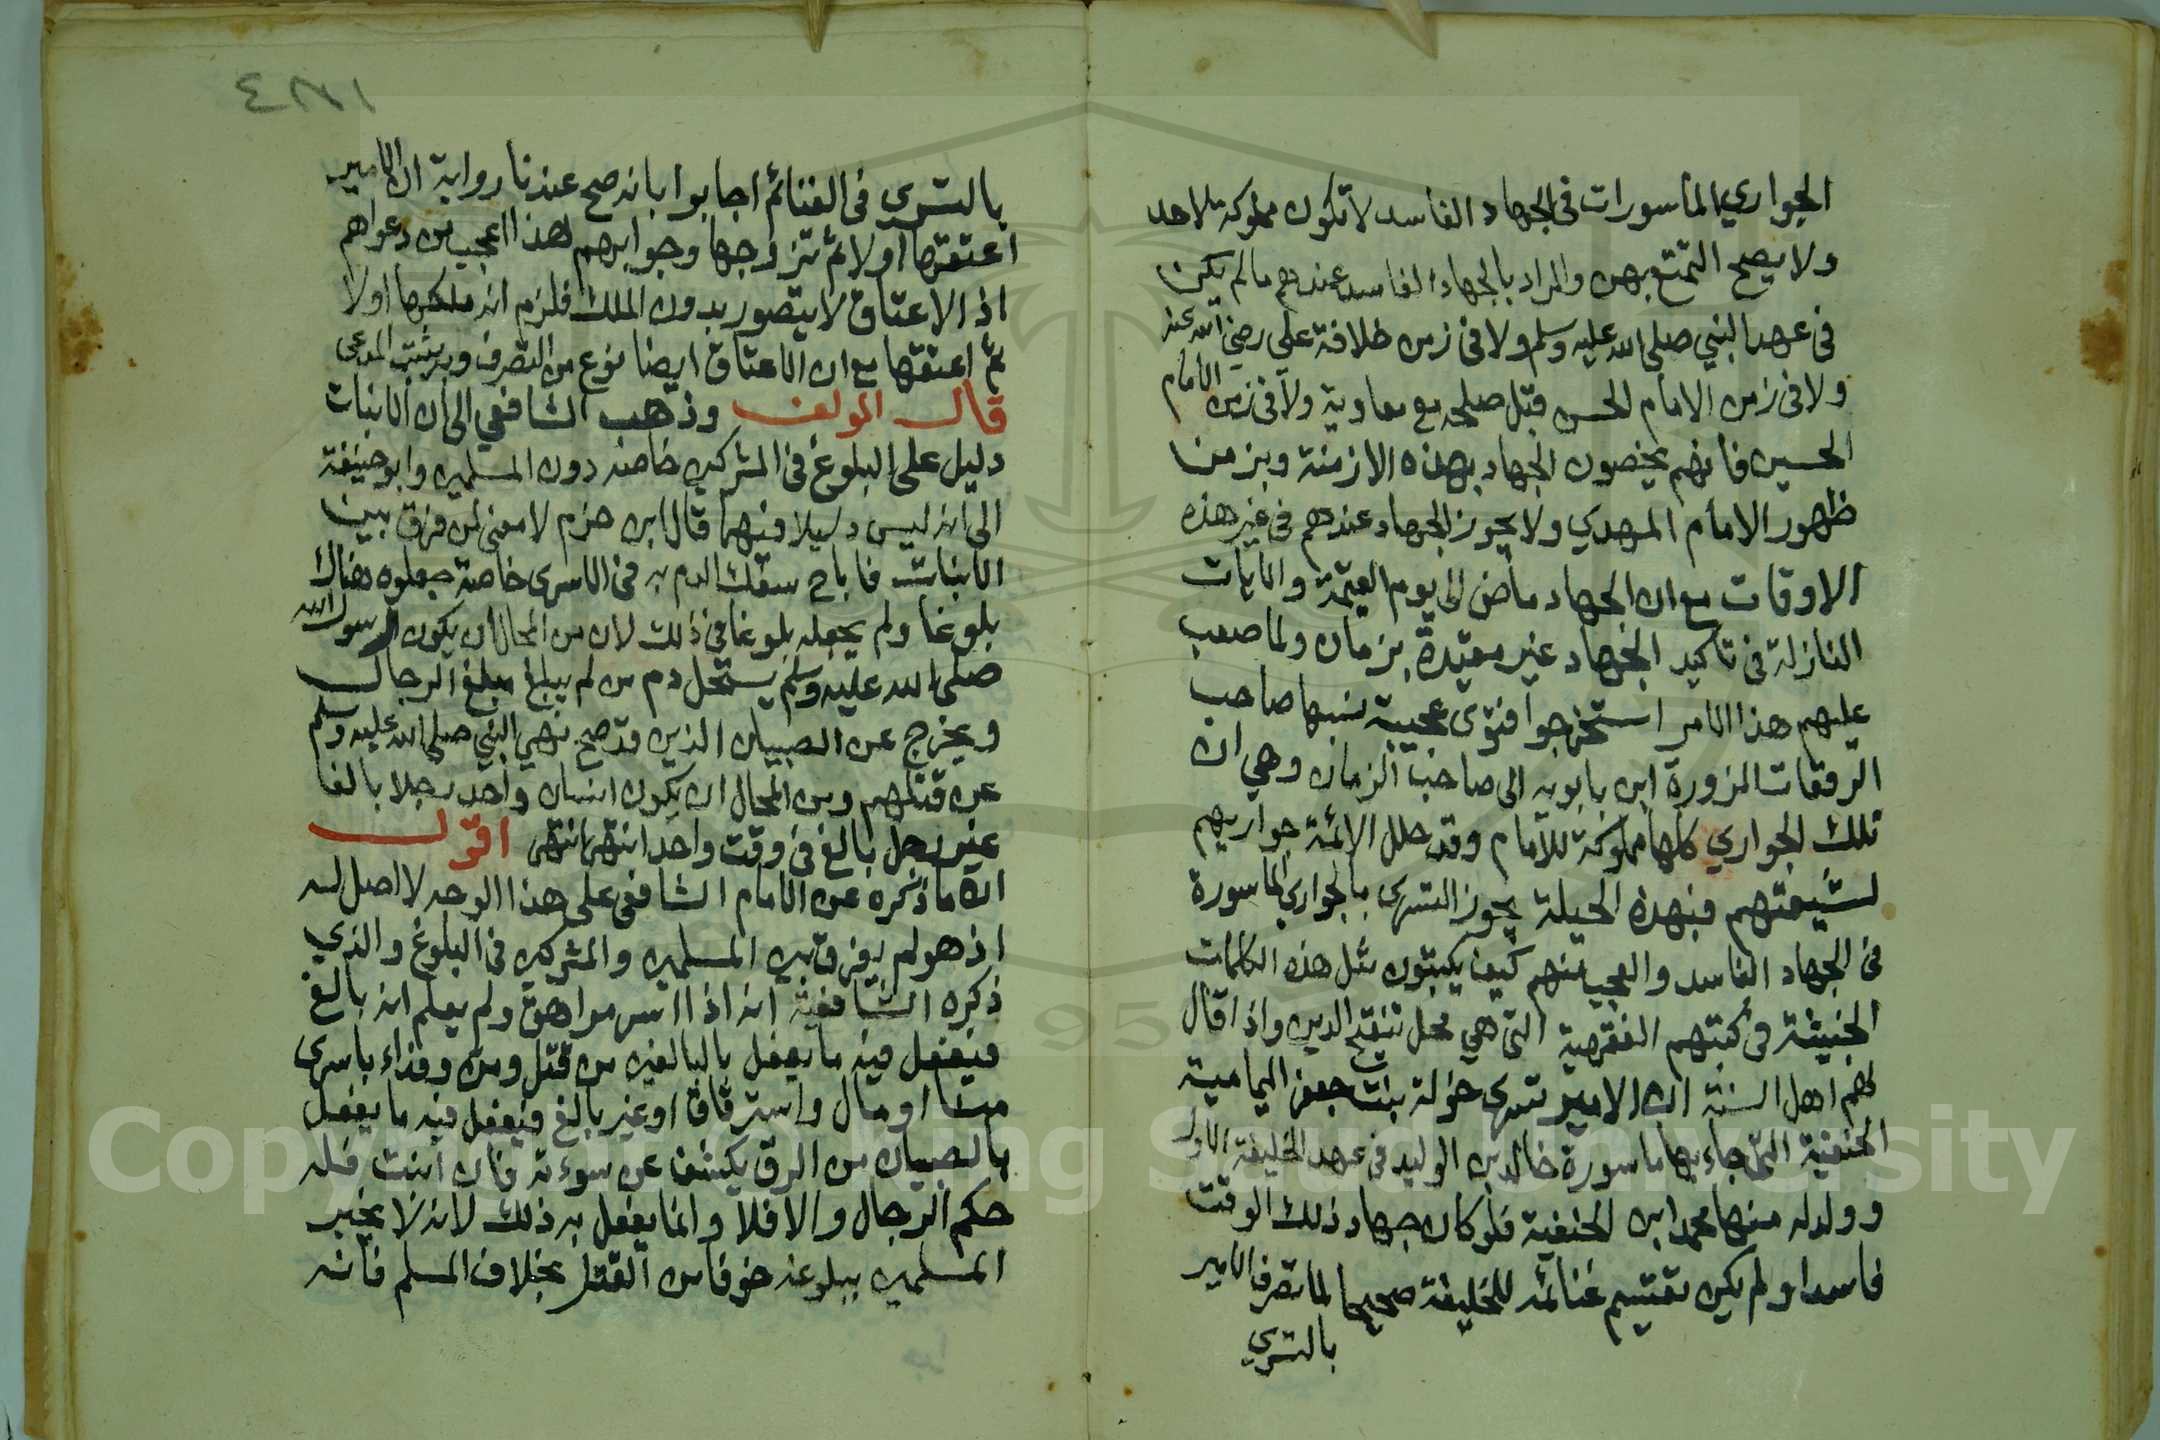 الجواري المأسورات في الجهاد الفاسد لا تكون مملوكة لاحد
ولا يصح التمتع بهن والمراد بالجهاد الفاسد عندهم ما لم يكن
في عهد النبي صلى الله عليه وسلم ولا في زمن خلافة علي رضي الله عنه
ولا في زمن الامام الحسن قبل صلحه مع معاوية ولا في زمن الأمام
الحسين فأنهم يخصون الجهاد بهذه الازمنة وبزمن
ظهور الامام المهدي ولا يجوز الجهاد عندهم في غير هذه
الاوقات مع ان الجهاد ماض الى يوم القيمة والايات
النازلة في تاكيد الجهاد غير مقيدة بزمان ولما صعب
عليهم هذا الامر استخرجوا فتوى عجيبة نسبها صاحب
الرقعات المزورة ابن بابويه الى صاحب الزمان وهي ان
تلك الجواري كلها مملوكة للامام وقد حلل الائمة جواريهم
لشيعتهم فبهذه الحيلة يجوز التسرى بالجواري الماسورة
في الجهاد الفاسد والعجب منهم كيف يكتبون مثل هذه الكلمات
الخبيثة في كتبهم الفقهية التي هي محل تنقيح الدين واذا قال
لهم اهل السنة ان الامير تسرى خولة بنت جعفر اليمامية
الحنفية التي جاء بها ماسورة خالد بن الوليد في عهد الخليفة الاول
وولد له منها محمد ابن الحنفية فلو كان جهاد ذلك الوقت
فاسدا ولم يكن تقسيم غنائمه للخليفة صحيحا لما تصرف الامير
بالتسري
٤٨١
بالتسري في الغنائم اجابوا بانه صح عندنا رواية ان الامير
اعتقها اولا ثم تزوجها وجوابهم هذا اعجب من دعواهم
اذ الاعتاق لا يتصور بدون الملك فلزم انه ملكها اولا
ثم اعتقها مع ان الاعتاق ايضا نوع من التصرف وبه يثبت المدعى
قال المولف وذهب الشافعي الى ان الانبات
دليل على البلوغ في المشركين خاصة دون المسلمين وابو حنيفة
الى انه ليس دليلا فيهما قال ابن حزم لا معنى لمن فرق بين
الانبات فاباح سفك الدم به في الاسرى خاصة جعلوه هناك
بلوغا ولم يجعله بلوغا في ذلك لان من المحال ان يكون رسول الله
صلى الله عليه وسلم يستحل دم من لم يبلغ مبلغ الرجال
ويخرج عن الصبيان الذين قد صح نهي النبي صلى الله عليه وسلم
عن قتلهم ومن المحال ان يكون انسان واحد رجلا بالغا
غير رجل بالغ في وقت واحد انتهى انتهى اقول
ان ما ذكره عن الامام الشافعى على هذا الوجه لا اصل له
اذ هو لم يفرق بين المسلمين والمشركين في البلوغ والذي
ذكره الشافعية انه اذا اسر مراهق ولم يعلم انه بالغ
فيفعل فيه ما يفعل بالبالغين من قتل ومن وفداء باسرى
منا او مال واسترقاق او غير بالغ فيفعل فيه ما يفعل
بالصبيان من الرق يكشف عن سوءته فان انبت فله
حكم الرجال والا فلا وانما يفعل به ذلك لانه لا يخبر
المسلمين ببلوغه خوفا من القتل بخلاف المسلم فانه
Copyright © King Saud University